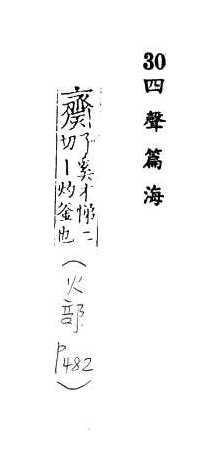 30四聲篇海
齌
子奚才悌二
切丨灼釜也
(火部P482)